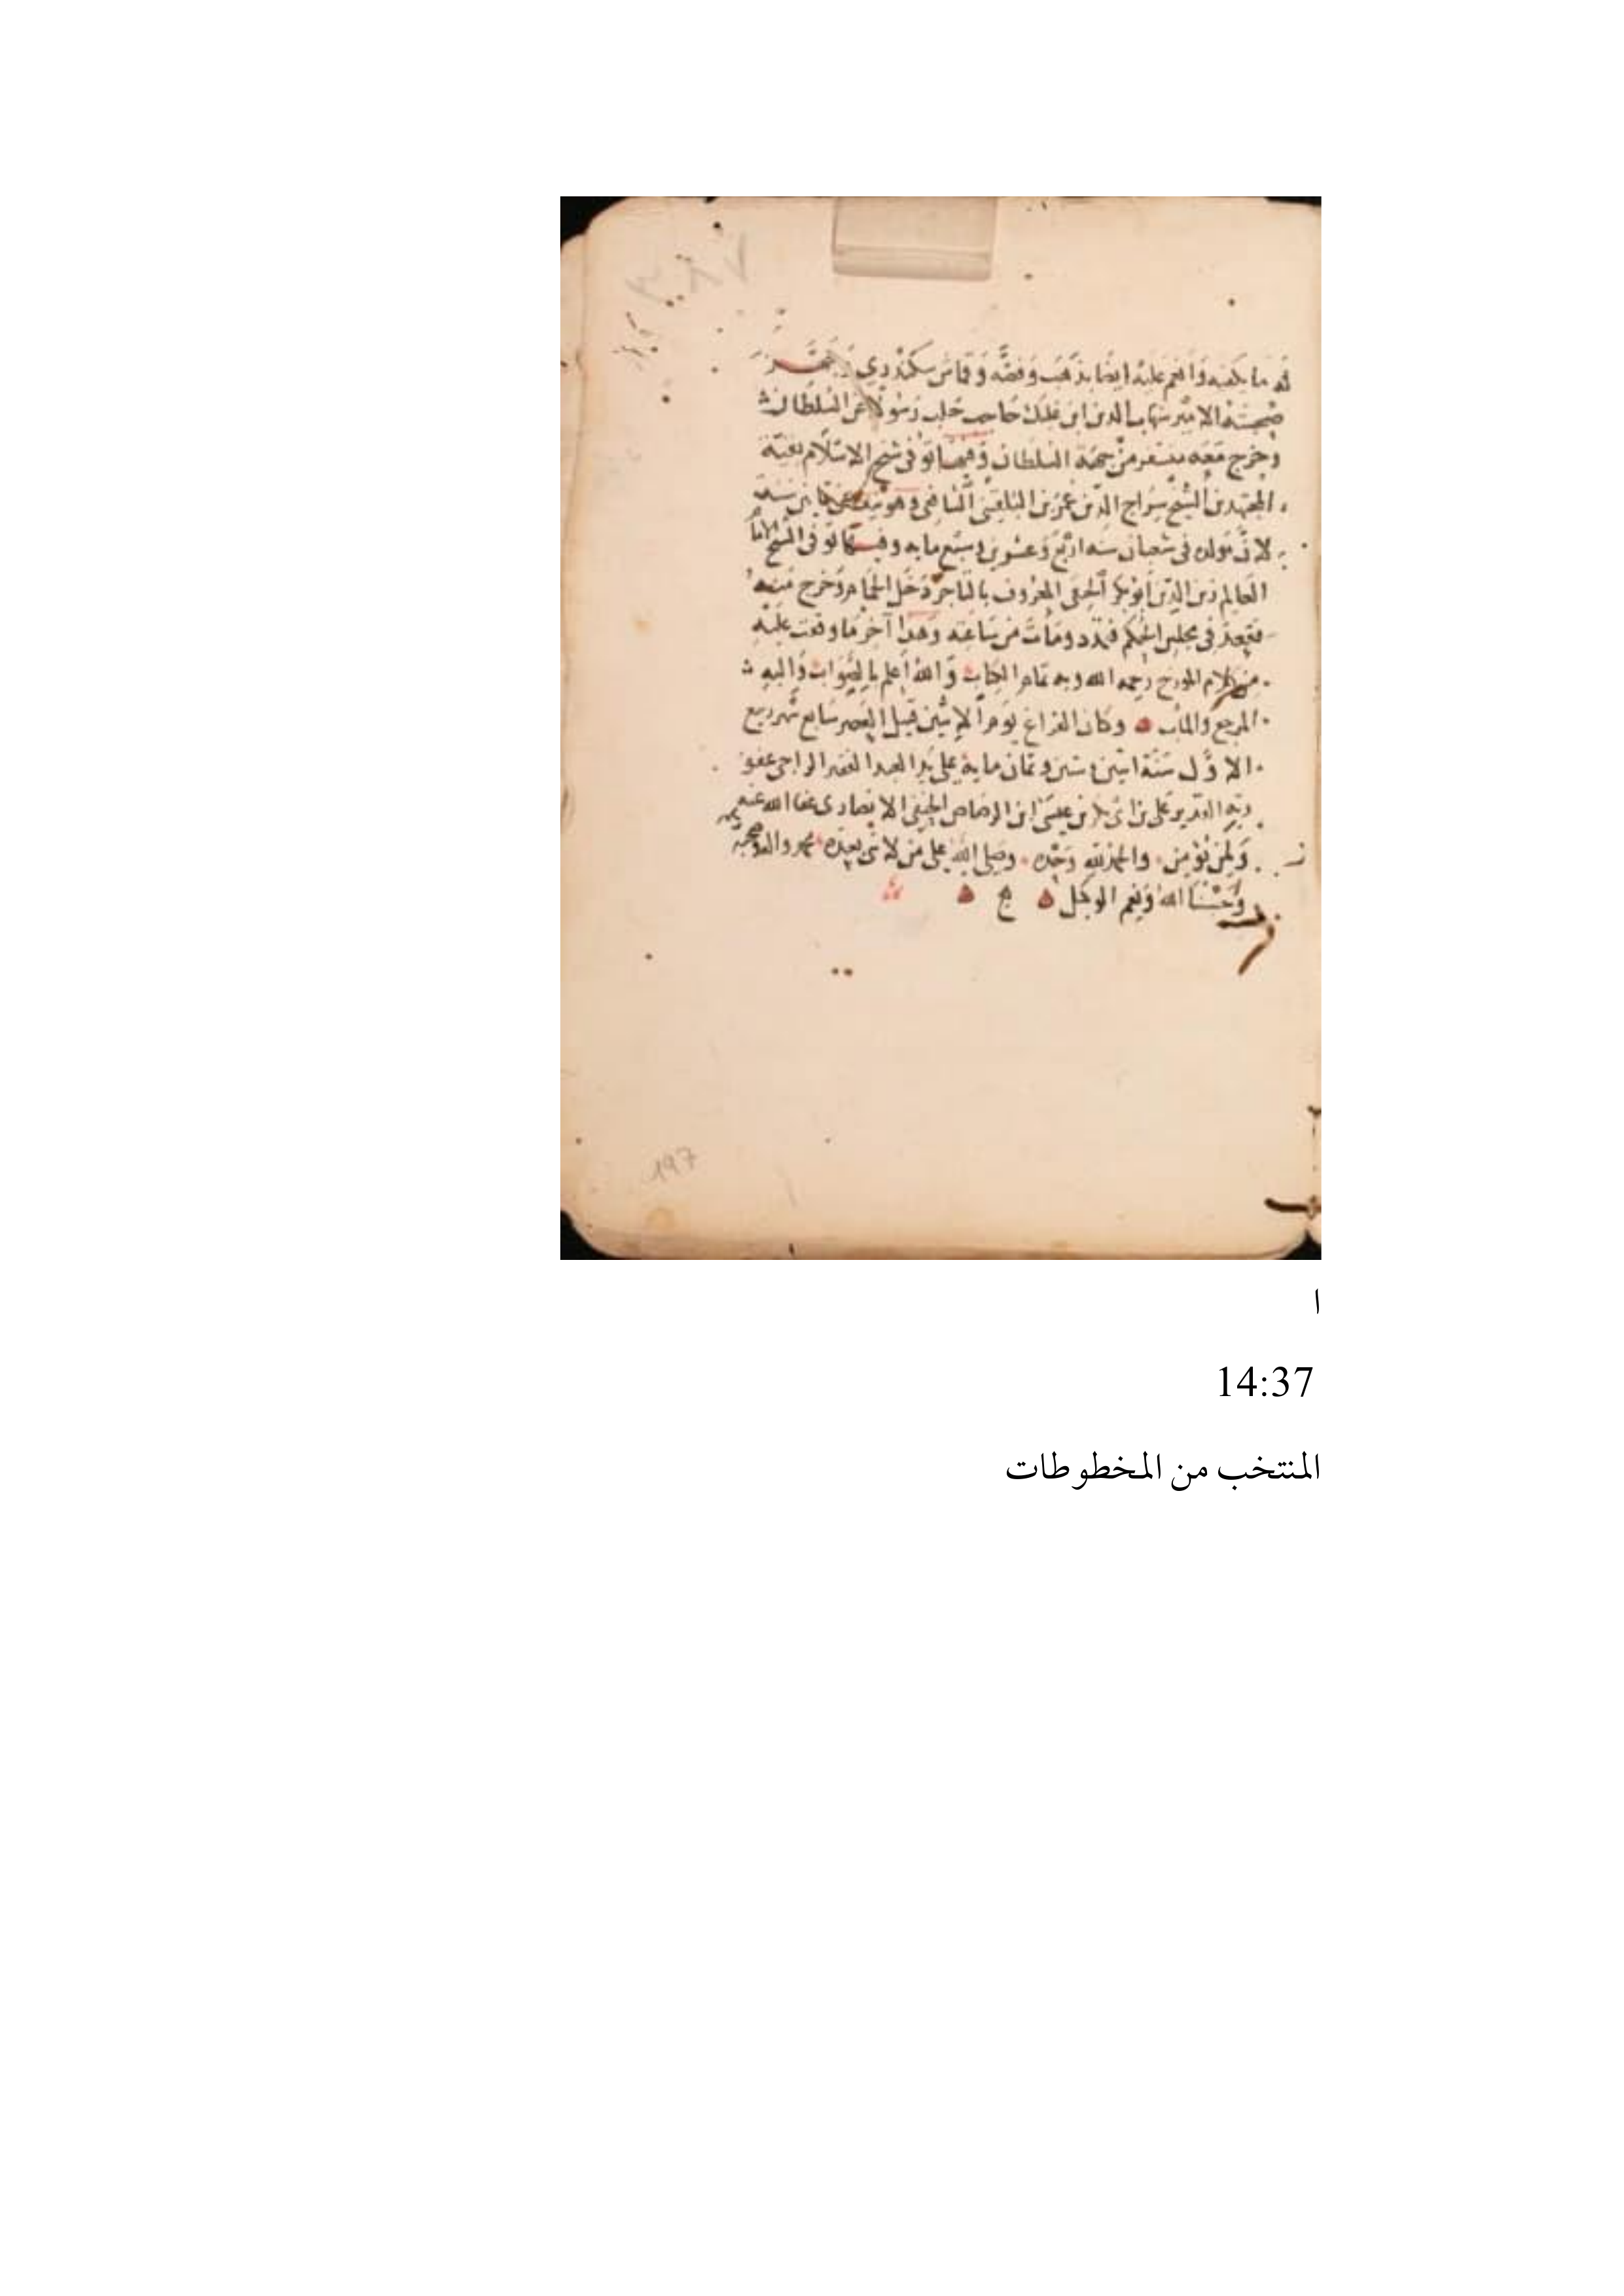 له ما يكفيه وأنعم عليه أيضا بذهب وفضة وقماش سكندري وجهز
صحبته الامير شهاب الدين ابن غلبك حاجب حلب رسولا عن السلطان
وخرج معه من جهة السلطان وفيها توفي شيخ الاسلام بقية
المجتهدين الشيخ سراج الدين عمر بن البلقيني الشافعي وهو نيف عن ثمانين سنة
لان مولده في شعبان سنه اربع وعشرين وسبع مايه وفيها توفي الشيخ الامام
العالم زين الدين أبو بكر الحنفي المعروف بالتاجر دخل الحمام وخرج منه
فقعد في مجلس الحكم فتمدد ومات من ساعته وهذا آخر ما وقفت عليه
من كلام المورخ رحمه الله وبه تمام الكتاب والله أعلم بالصواب واليه
المرجع والمآب وكان الفراغ يوم الاثنين قبيل العصر سابع شهر ربيع
الاول سنة اثنين وستين وثمان ماية على يد العبد الفقير الراجي عفو
ربه القدير علي بن ابي بكر بن عيسى ابن الرصاص الحنفي الانصاري عفا الله عنه
ولمن يؤمن والحمد لله وحده وصلى الله على من لا نبي بعده محمد واله وصحبه
وحسبنا الله ونعم الوكيل
197
ا
14:37
المنتخب من المخطوطات